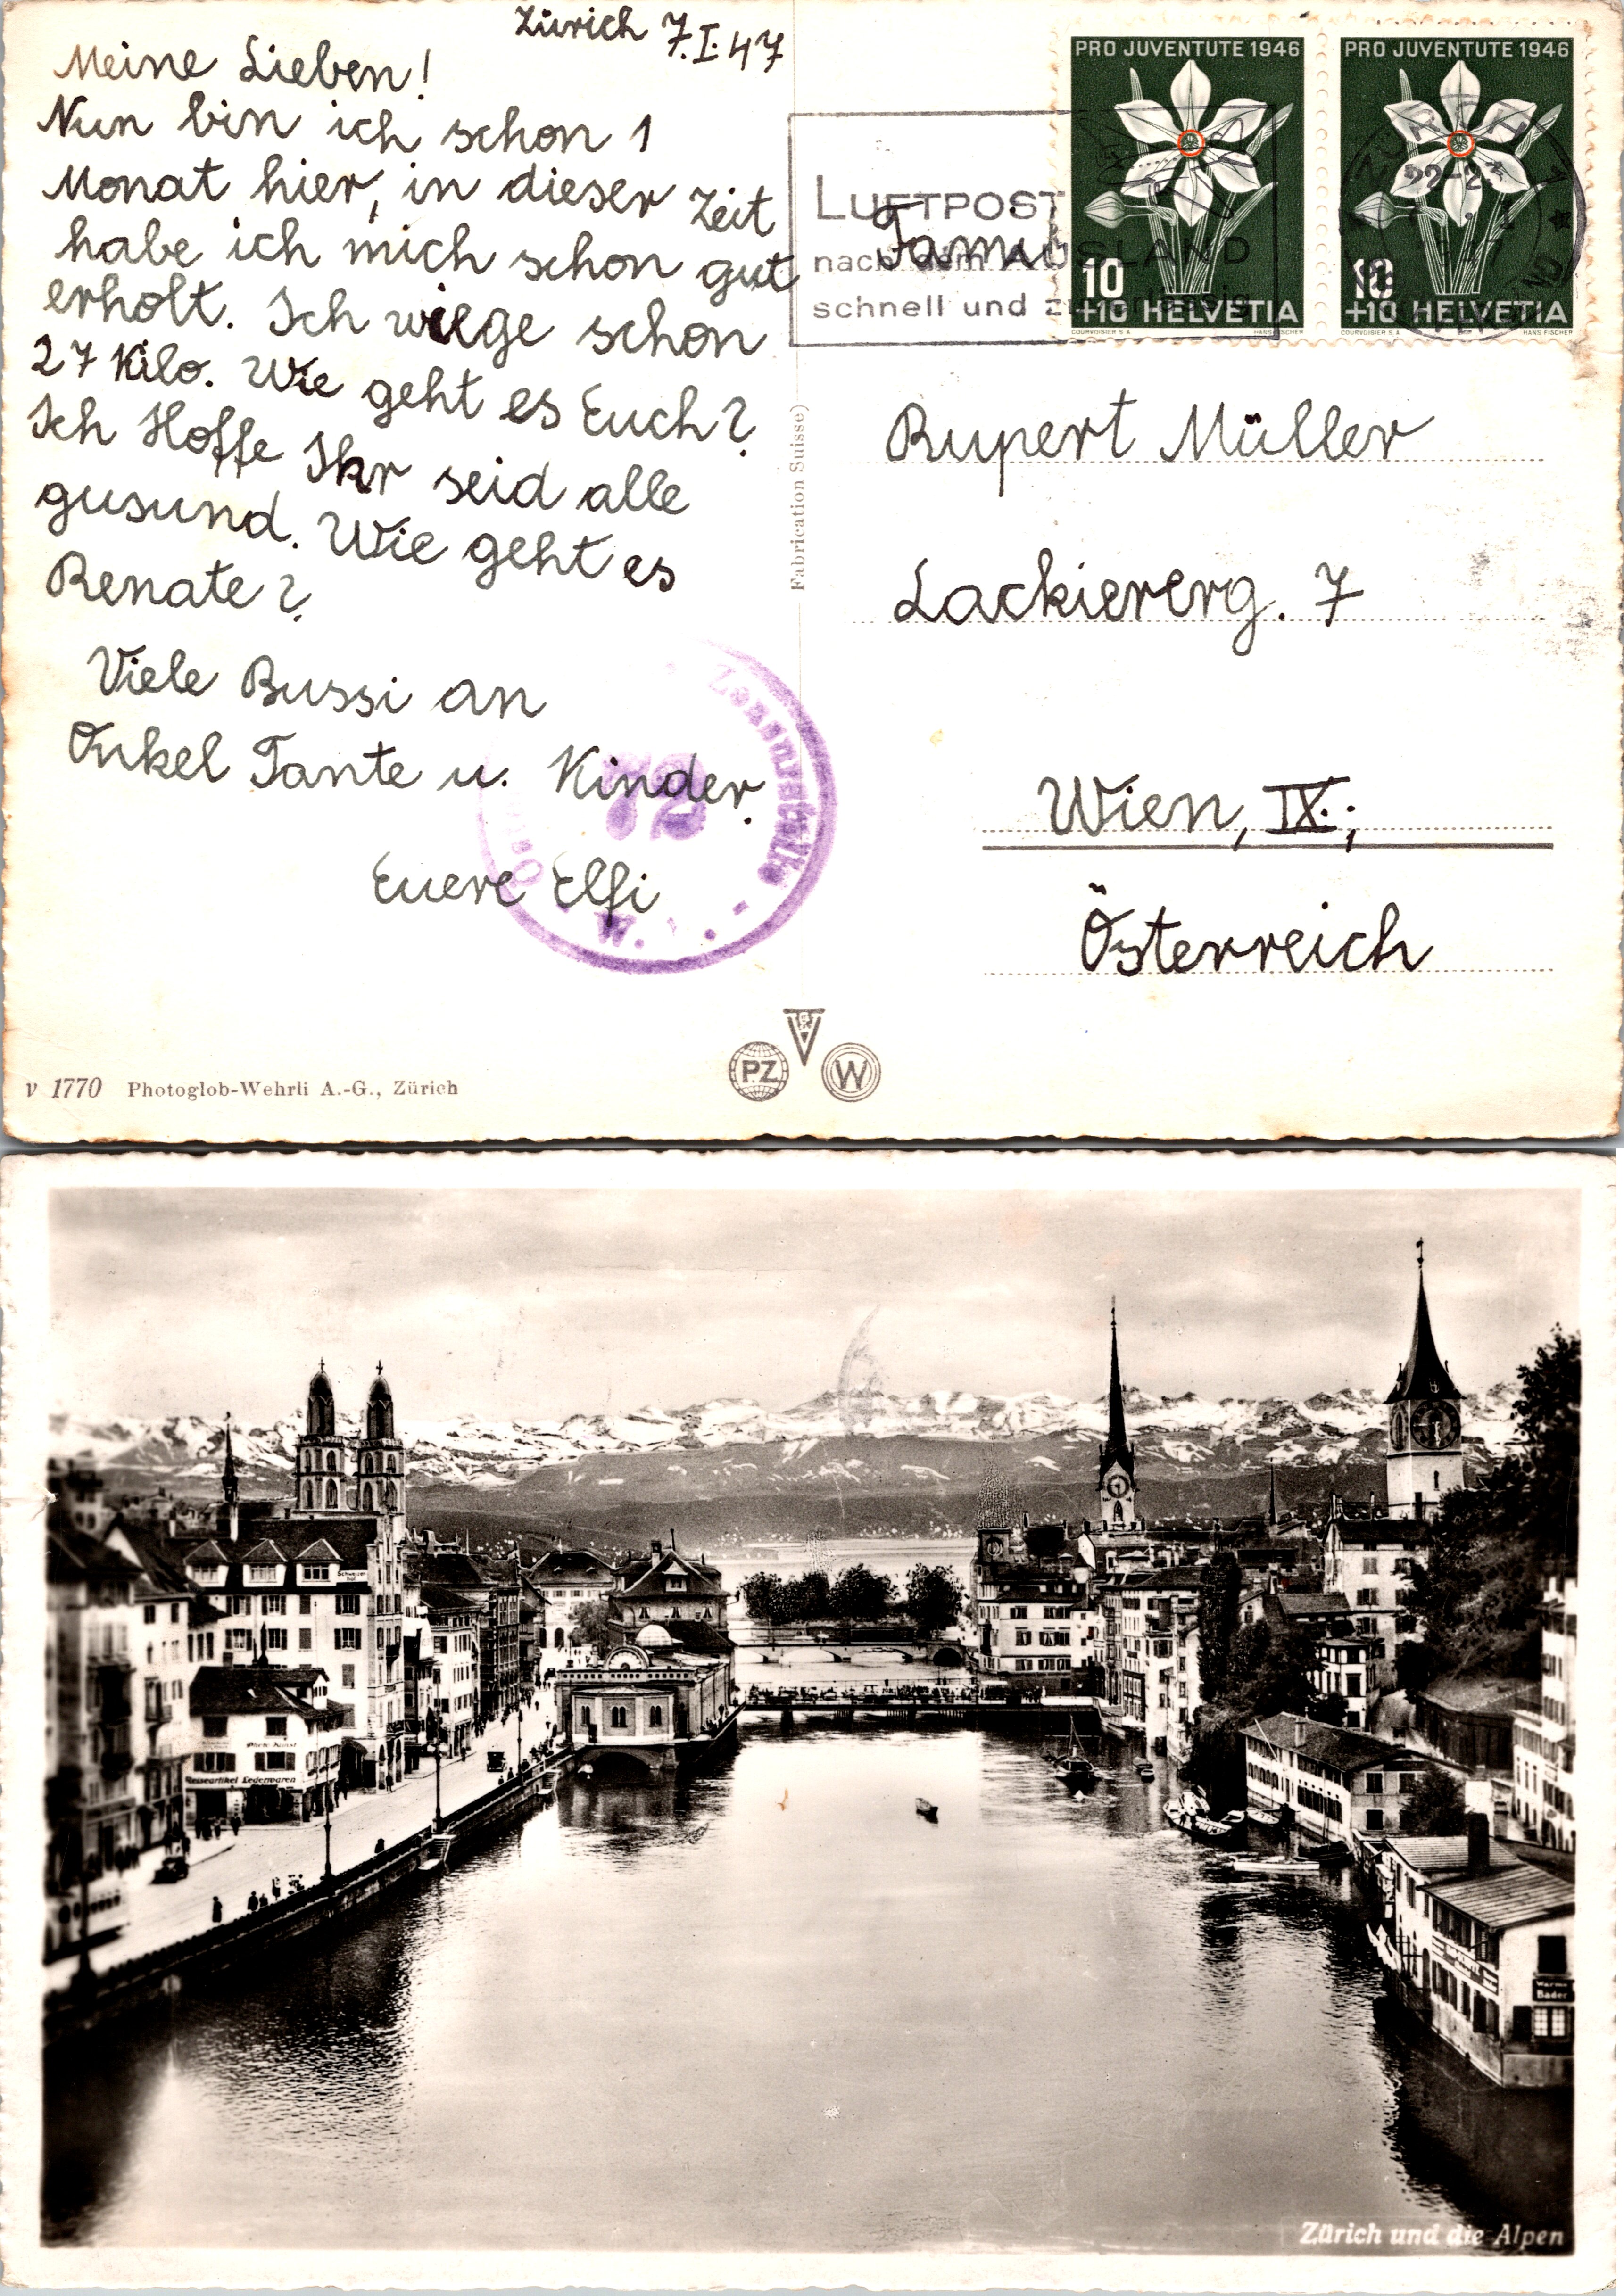 Zürich 7.I.47
Meine Lieben!
Nun bin ich schon 1
Monat hier, in dieser Zeit
habe ich mich schon gut
erholt. Ich wiege schon
27 Kilo. Wie geht es Euch?
Ich Hoffe Ihr seid alle
gusund. Wie geht es
Renate?
Viele Bussi an
Onkel Tante u. Kinder.
Euere Elfi
Zensurstelle
72
W.
v 1770 Photoglob-Wehrli A.-G., Zürich
Fabrication Suisse)
PZ
W
PRO JUVENTUTE 1946
10
+10 HELVETIA
COURVOISIER S.A. HANS FISCHER
PRO JUVENTUTE 1946
10
+10 HELVETIA
COURVOISIER S.A. HANS FISCHER
22-23
LUFTPOST
nach dem AUSLAND
schnell und zuverlässig
Rupert Müller
Lackiererg. 7
Wien, IX.;
Österreich
Schweizer
hof
Photo-Kunst
Reiseartikel Lederwaren
Warme
Bäder
Zürich und die Alpen